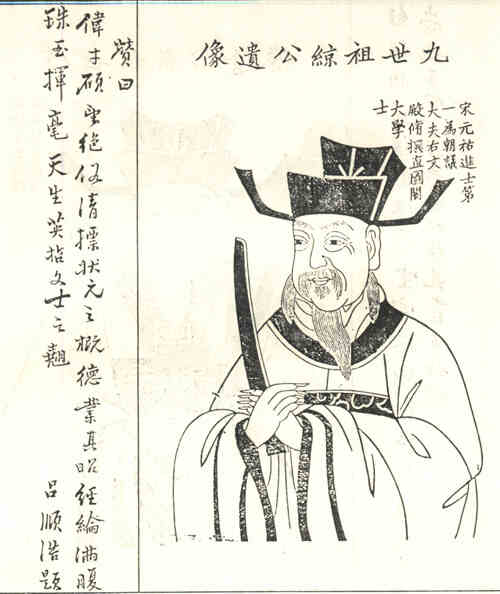 九世祖公遺像
宋元祐進士第
一為朝議
大夫右文
殿脩撰直國閣
大學
士
贊曰
偉才碩望絕俗清標狀元之概德業其昭經綸滿腹
珠玉揮毫天生英哲文士之翹 呂順浩題